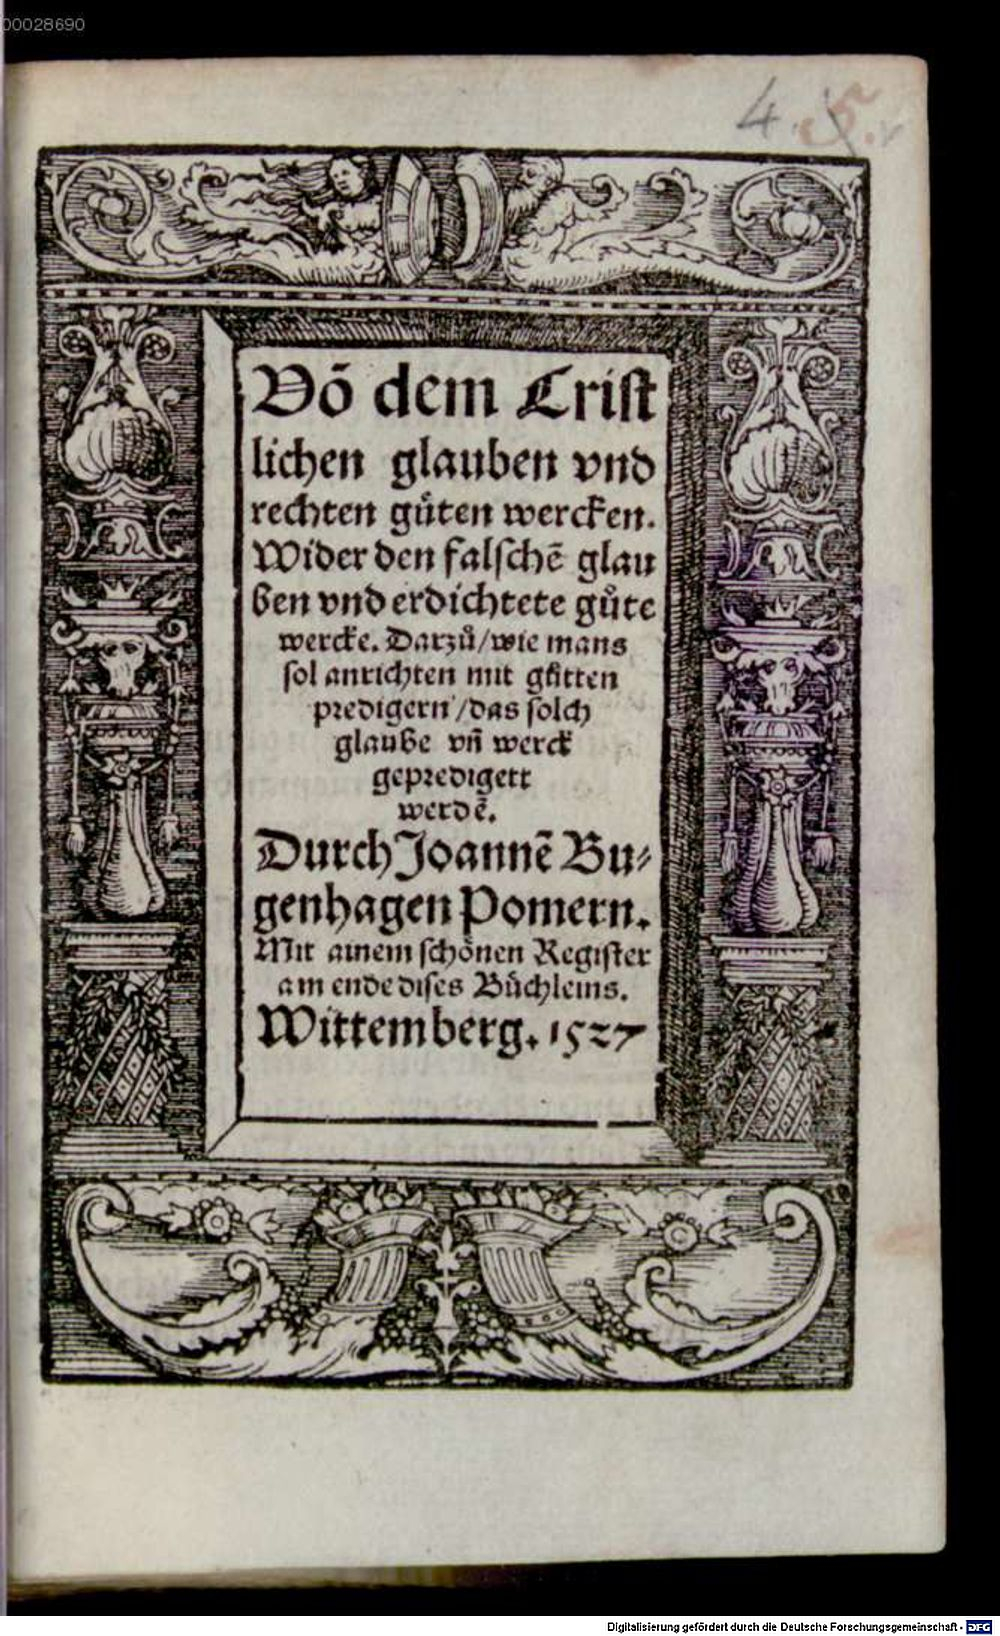 00028690
4.
Võ dem Crist
lichen glauben vnd
rechten gůten wercken.
Wider den falschẽ glau
ben vnd erdichtete gůte
wercke. Darzů / wie mans
sol anrichten mit gůtten
predigern / das solch
glaube vñ werck
gepredigett
werdẽ.
Durch Joannẽ Bu⸗
genhagen Pomern.
Mit ainem schönen Register
am ende dises Bůchleins.
Wittemberg. 1527
Digitalisierung gefördert durch die Deutsche Forschungsgemeinschaft - DFG